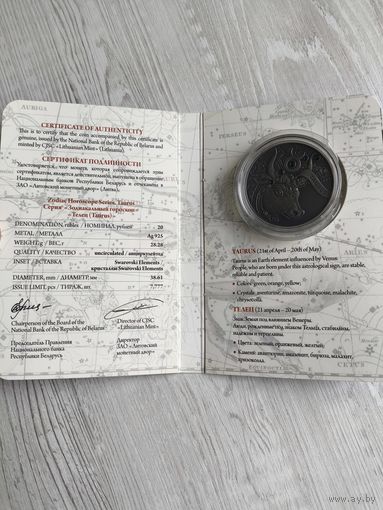 AURIGA
CERTIFICATE OF AUTHENTICITY
This is to certify that the coin accompanied by this certificate is
genuine, issued by the National Bank of the Republic of Belarus and
minted by CJSC «Lithuanian Mint» (Lithuania).
СЕРТИФИКАТ ПОДЛИННОСТИ
Удостоверяется, что монета, которая сопровождается этим
сертификатом, является действительной, выпущена в обращение
Национальным банком Республики Беларусь и отчеканена в
ЗАО «Литовский монетный двор» (Литва).
Zodiac Horoscope Series. Taurus
Серия «Зодиакальный гороскоп»
Телец (Taurus)
DENOMINATION, rubles / НОМИНАЛ, рублей 20
METAL / МЕТАЛЛ Ag 925
WEIGHT, g / ВЕС, г 28.28
QUALITY / КАЧЕСТВО uncirculated / анциркулейтед
INSET / ВСТАВКА Swarovski Elements
кристаллы Swarovski Elements
DIAMETER, mm / ДИАМЕТР, мм 38.61
ISSUE LIMIT, pcs / ТИРАЖ, шт.
Chairperson of the Board of the
National Bank of the Republic
of Belarus
Director of CJSC
«Lithuanian Mint»
Председатель Правления
Национального банка
Республики Беларусь
Директор
ЗАО «Литовский
монетный двор»
PERSEUS
TAURUS (21st of April – 20th of May)
Taurus is an Earth element influenced by Venus.
People, who are born under this astrological sign, are stable,
reliable and patient.
• Colors: green, orange, yellow;
• Crystals: aventurine, amazonite, turquoise, malachite,
chrysocolla.
ТЕЛЕЦ (21 апреля – 20 мая)
Знак Земли под влиянием Венеры.
Люди, рожденные под знаком Тельца, стабильны,
надежны и терпеливы.
• Цвета: зеленый, оранжевый, желтый;
• Камни: авантюрин, амазонит, бирюза, малахит,
хризоколла.
CETUS
www.ay.by